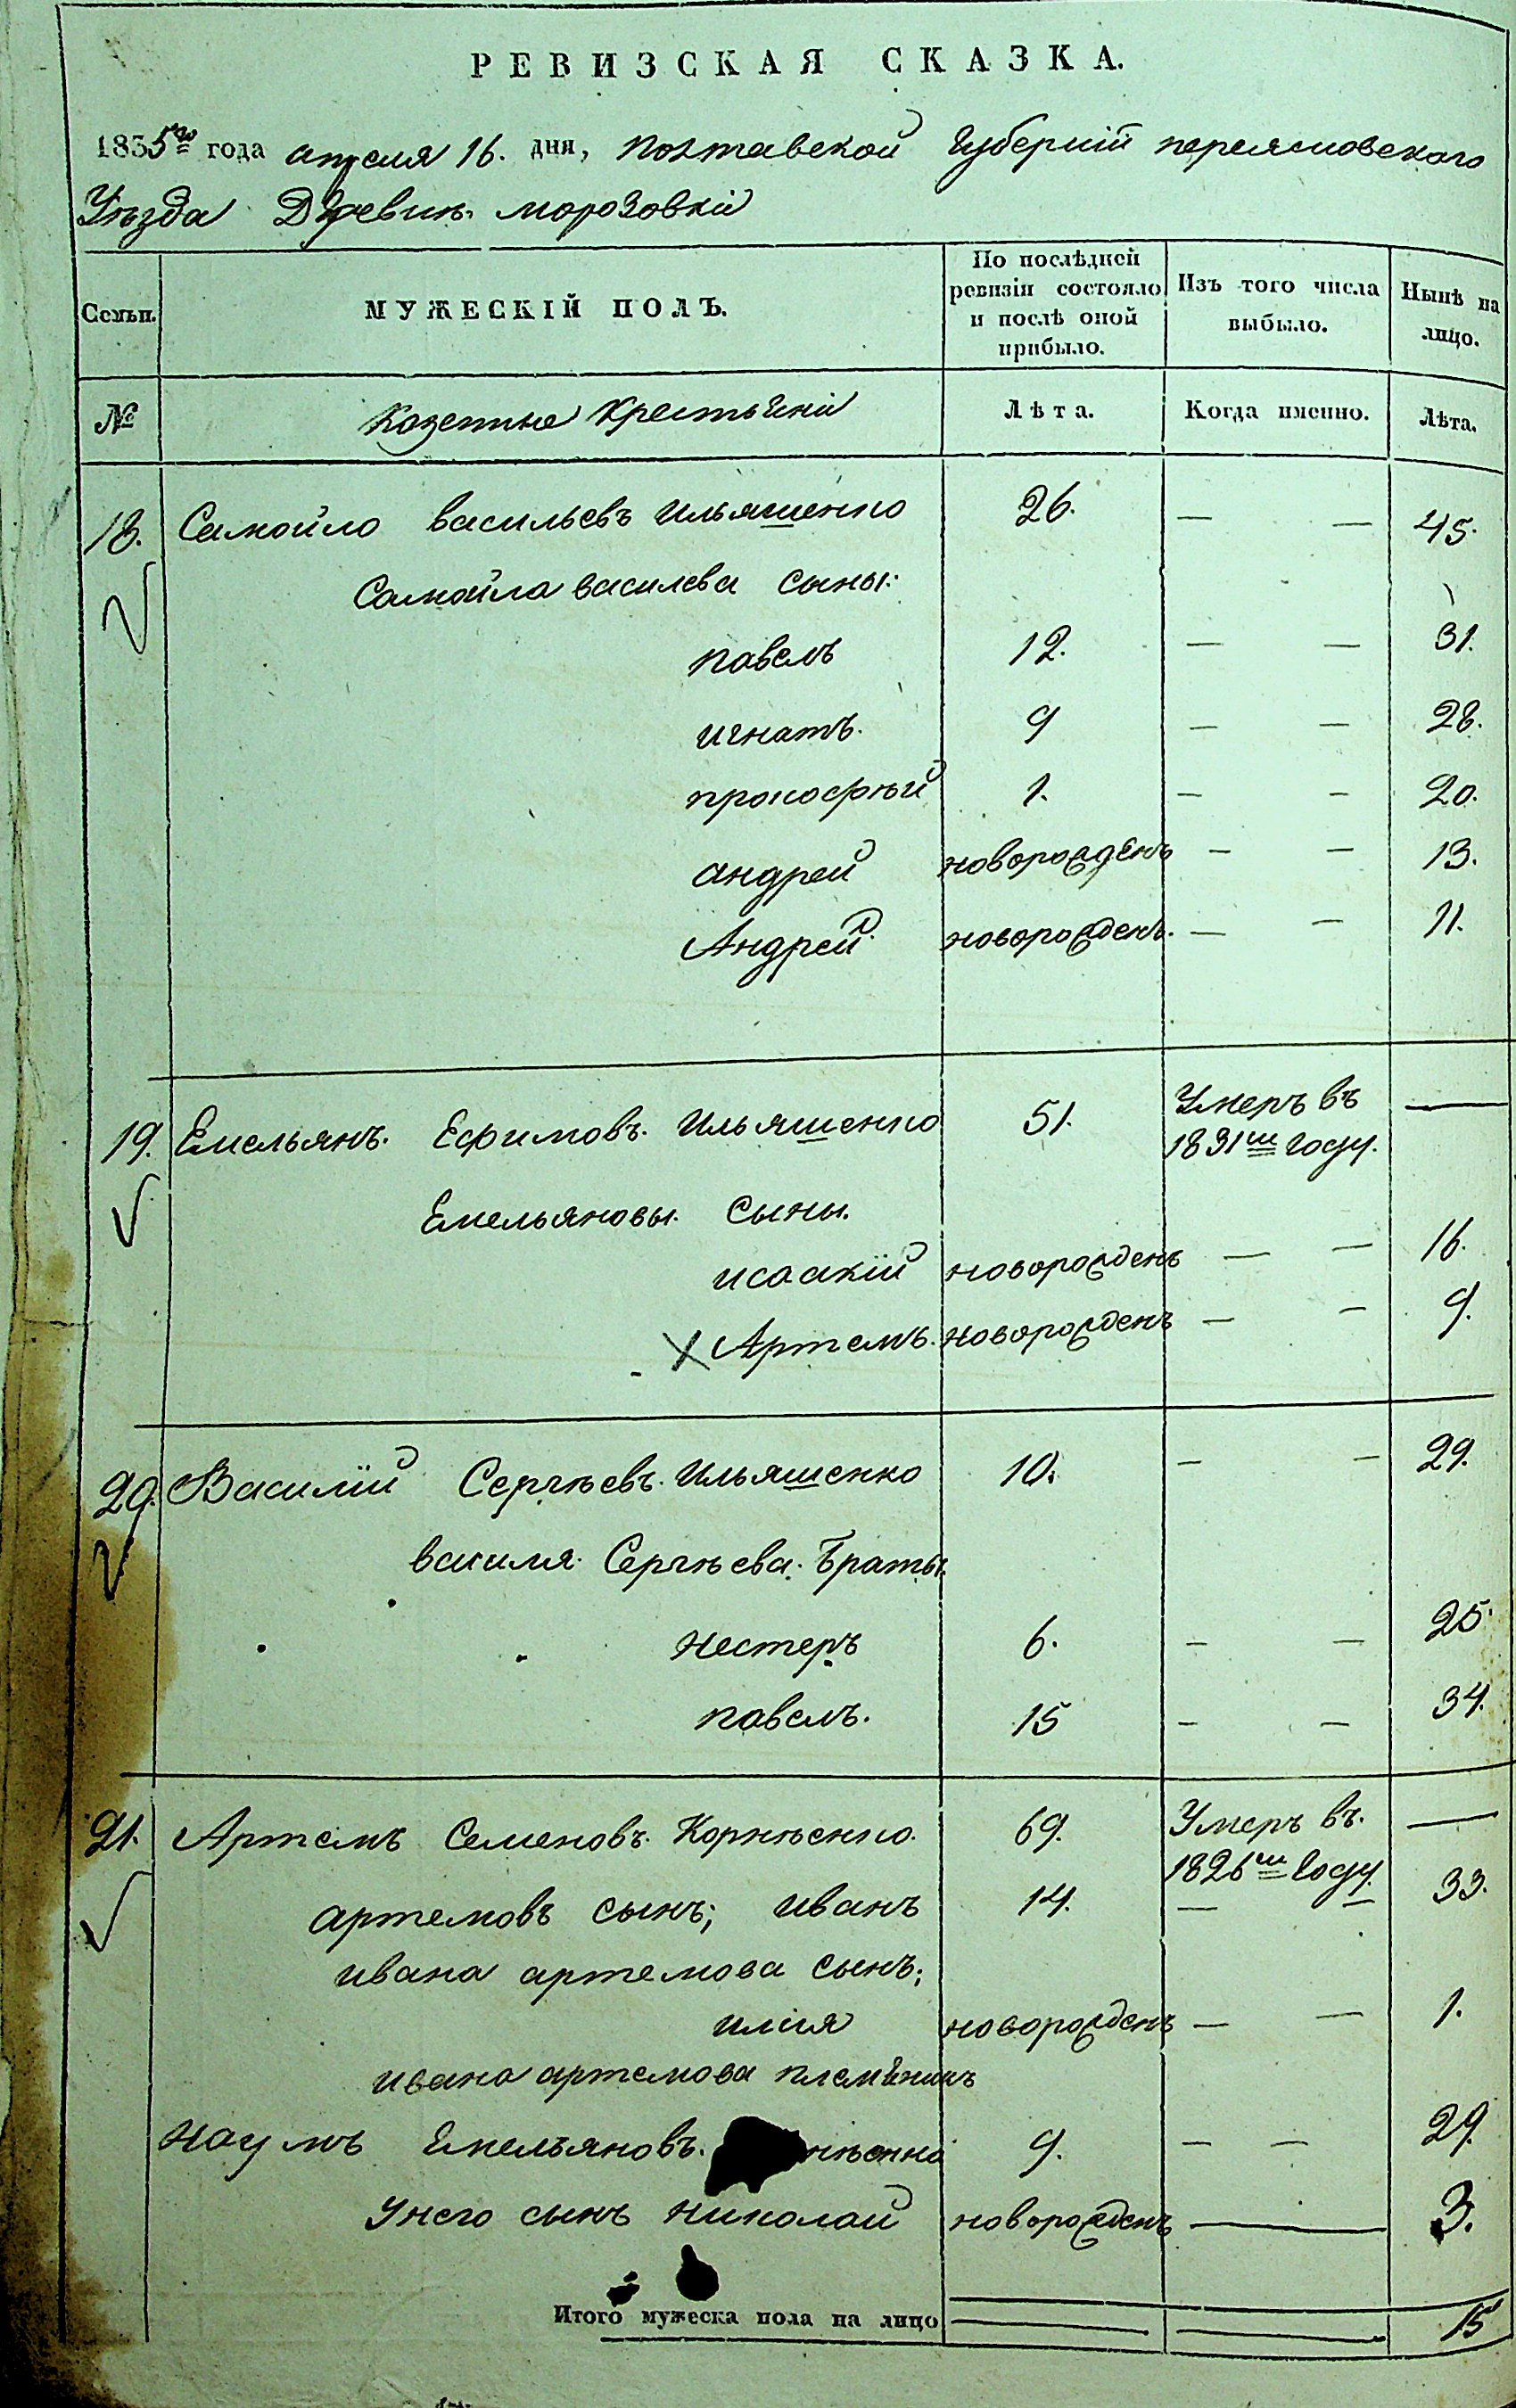 РЕВИЗСКАЯ СКАЗКА.
1835го года апреля 16. дня, Полтавской Губернїй переясловского
Уѣзда Деревнѣ морозовкі
Семьи. МУЖЕСКІЙ ПОЛЪ. По послѣдней ревизіи состояло и послѣ оной прибыло. Изъ того числа выбыло. Нынѣ на лицо.
№ Казенные Крестьяні Лѣта. Когда именно. Лѣта.
18. Самойло васильевъ ильяшенко 26. — — 45.
Самойла василева сыны:
павелъ 12. — — 31.
игнатъ. 9 — — 28.
прокофѣй 1. — — 20.
андрей новорожденъ — — 13.
Андрей новорожденъ. — — 11.
19. Емельянъ. Ефимовъ. Ильяшенко 51. Умеръ въ —
1831м году.
Емельяновы. сыны.
исаакїй новорожденъ — — 16.
Артемъ. новорожденъ — — 9.
20. Василїй Сергѣевъ. Ильяшенко 10. — — 29.
василя. Сергѣева. Браты.
нестеръ 6. — — 25.
павелъ. 15 — — 34.
21. Артемъ Семеновъ. Корнѣенко. 69. Умеръ въ. —
1826м году.
артемовъ сынъ; иванъ 14. — — 33.
ивана артемова сынъ;
илія новорожденъ — — 1.
ивана артемова племѣникъ
Наумъ Емельяновъ. нѣенко 9. — — 29.
Унего сынъ николай новорожденъ — 3.
Итого мужеска пола на лицо — — 15